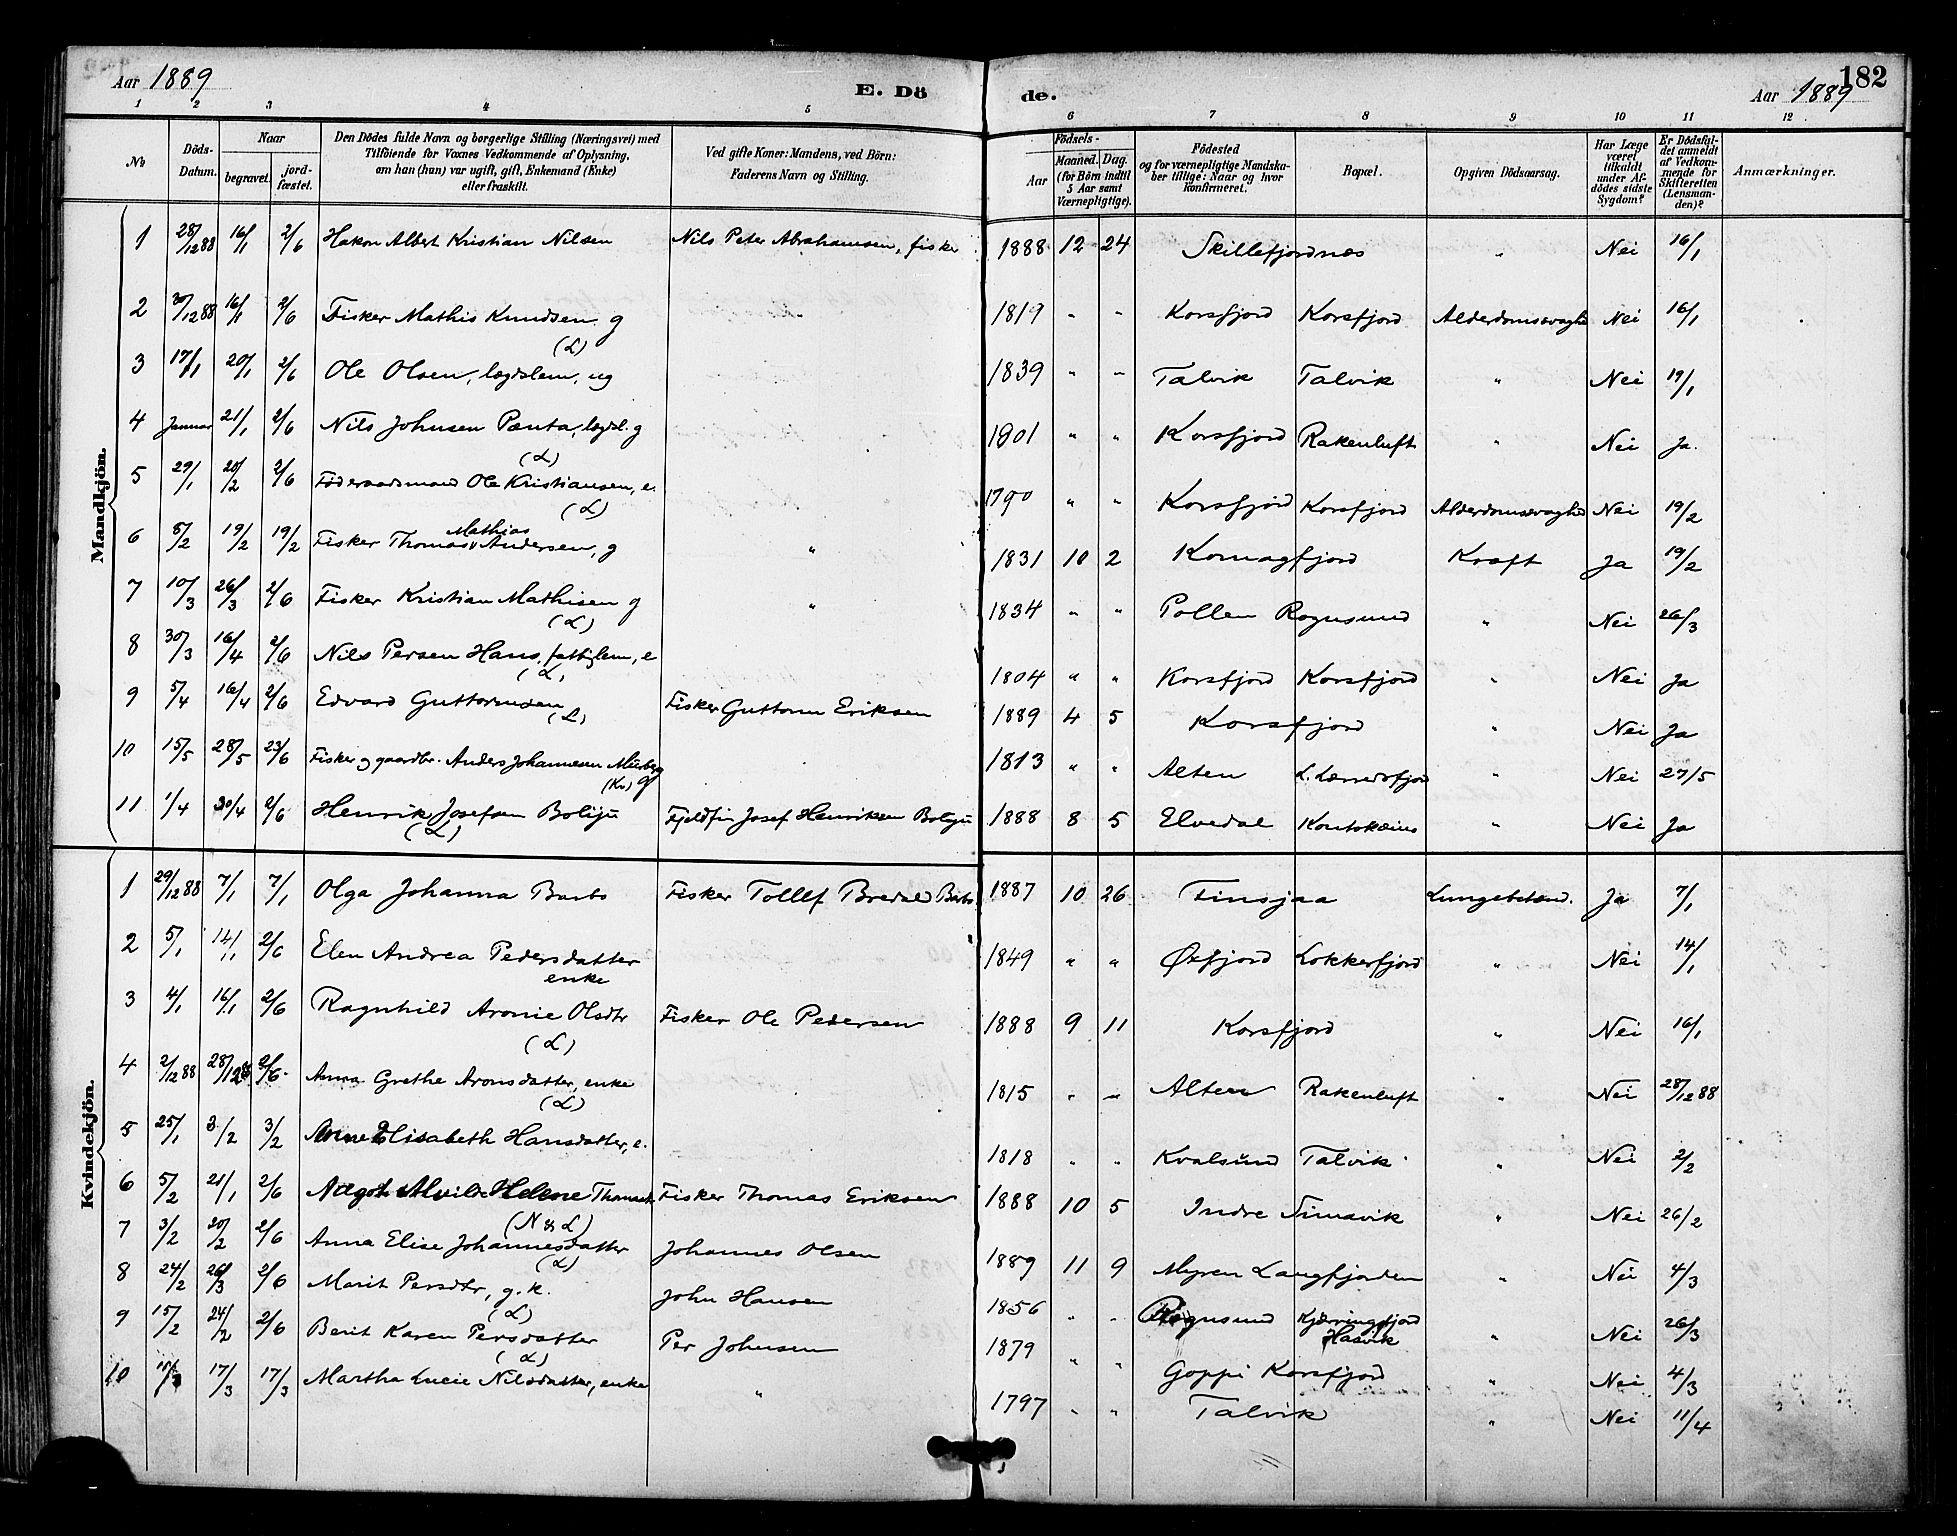 Aar 1889
E. Dö
de.
182
Aar 1889
1 2 3 4 5 6 7 8 9 10 11 12
No
Döds-Datum.
Naar
begravet.
jord-fæstet.
Den Dödes fulde Navn og borgerlige Stilling (Næringsvei) med
Tilföiende for Voxnes Vedkommende af Oplysning,
om han (hun) var ugift, gift, Enkemand (Enke)
eller fraskilt.
Ved gifte Koner: Mandens, ved Börn:
Faderens Navn og Stilling.
Födsels-
Aar
Maaned. Dag.
(for Börn indtil
5 Aar samt
Værnepligtige).
Födested
og for værnepligtige Mandska-
ber tillige: Naar og hvor
konfirmeret.
Bopæl.
Opgiven Dödsaarsag.
Har Læge
været
tilkaldt
under Af-
dödes sidste
Sygdom?
Er Dödsfal-
det anmeldt
af Vedkom-
mende for
Skifteretten
(Lensman-
den)?
Anmærkninger.
Mandkjön.
1 28/12 88 16/1 2/6 Hakon Albert Kristian Nilsen Nils Peter Abrahamsen, fisker 1888 12 24 Skillefjordnæs " Nei 16/1
2 30/12 88 16/1 2/6 Fisker Mathis Knudsen g (L) " 1819 " " Korsfjord Korsfjord Alderdomssvaghed Nei 16/1
3 17/1 20/1 2/6 Ole Olsen, lægdslem, ug 1839 " " Talvik Talvik " Nei 19/1
4 Januar 21/1 2/6 Nils Johnsen Pænta, lægdsl. g (L) 1801 " " Korsfjord Rakenluft " Nei Ja.
5 29/1 20/2 2/6 Föderaadsmand Ole Kristiansen, e. (L) 1790 " " Korsfjord Korsfjord Alderdomssvaghed Nei 19/2
6 5/2 19/2 19/2 Fisker Thomas Mathias Andersen, g " 1831 10 2 Komagfjord Kræft Ja 19/2
7 10/3 26/3 2/6 Fisker Kristian Mathisen g (L) " 1834 " " Pollen Rognsund " Nei 26/3
8 30/3 16/4 2/6 Nils Persen Hans, fattiglem, e (L) 1804 " " Korsfjord Korsfjord " Nei Ja
9 5/4 16/4 2/6 Edvard Guttormsen (L) Fisker Guttorm Eriksen 1889 4 5 Korsfjord " Nei Ja
10 15/5 28/5 23/6 Fisker og gaardbr. Anders Johannesen Murberg (Kv) g 1813 " " Alten L. Lerresfjord " Nei 27/5
11 1/4 30/4 2/6 Henrik Josefsen Bolju (L) Fjeldfin Josef Henriksen Bolju 1888 8 5 Elvedal Koutokæino " Nei Ja
Kvindekjön.
1 29/12 88 7/1 7/1 Olga Johanna Barbo Fisker Tollef Bredal Barbo 1887 10 26 Finsjaa Lungebetænd. Ja 7/1
2 5/1 14/1 2/6 Elen Andrea Pedersdatter enke 1849 " " Øxfjord Lokkerfjord " Nei 14/1
3 4/1 16/1 2/6 Ragnhild Aronie Olsdtr (L) Fisker Ole Pedersen 1888 9 11 Korsfjord " Nei 16/1
4 2/12 88 28/12 88 2/6 Anna Grethe Aronsdatter, enke (L) 1815 " " Alten Rakenluft " Nei 28/12 88
5 25/1 3/2 3/2 Anne Elisabeth Hansdatter, e. 1818 " " Kvalsund Talvik " Nei 2/2
6 5/2 21/1 2/6 Alvilde Helene (N & L) Fisker Thomas Eriksen 1888 10 5 Indre Simavik " Nei 26/2
7 3/2 20/2 2/6 Anna Elise Johannesdatter (L) Johannes Olsen 1889 11 9 Myren Langfjorden " Nei 4/3
8 24/2 26/3 2/6 Marit Persdtr, g. k. (L) John Hansen 1856 " " Rognsund Kjærringfjord Hasvik " Nei 26/3
9 15/2 24/2 2/6 Berit Karen Persdatter (L) Per Johnsen 1879 " " Goppi Korsfjord " Nei 4/3
10 17/3 17/3 Martha Lucie Nilsdatter, enke " 1797 " " Talvik " Nei 11/4